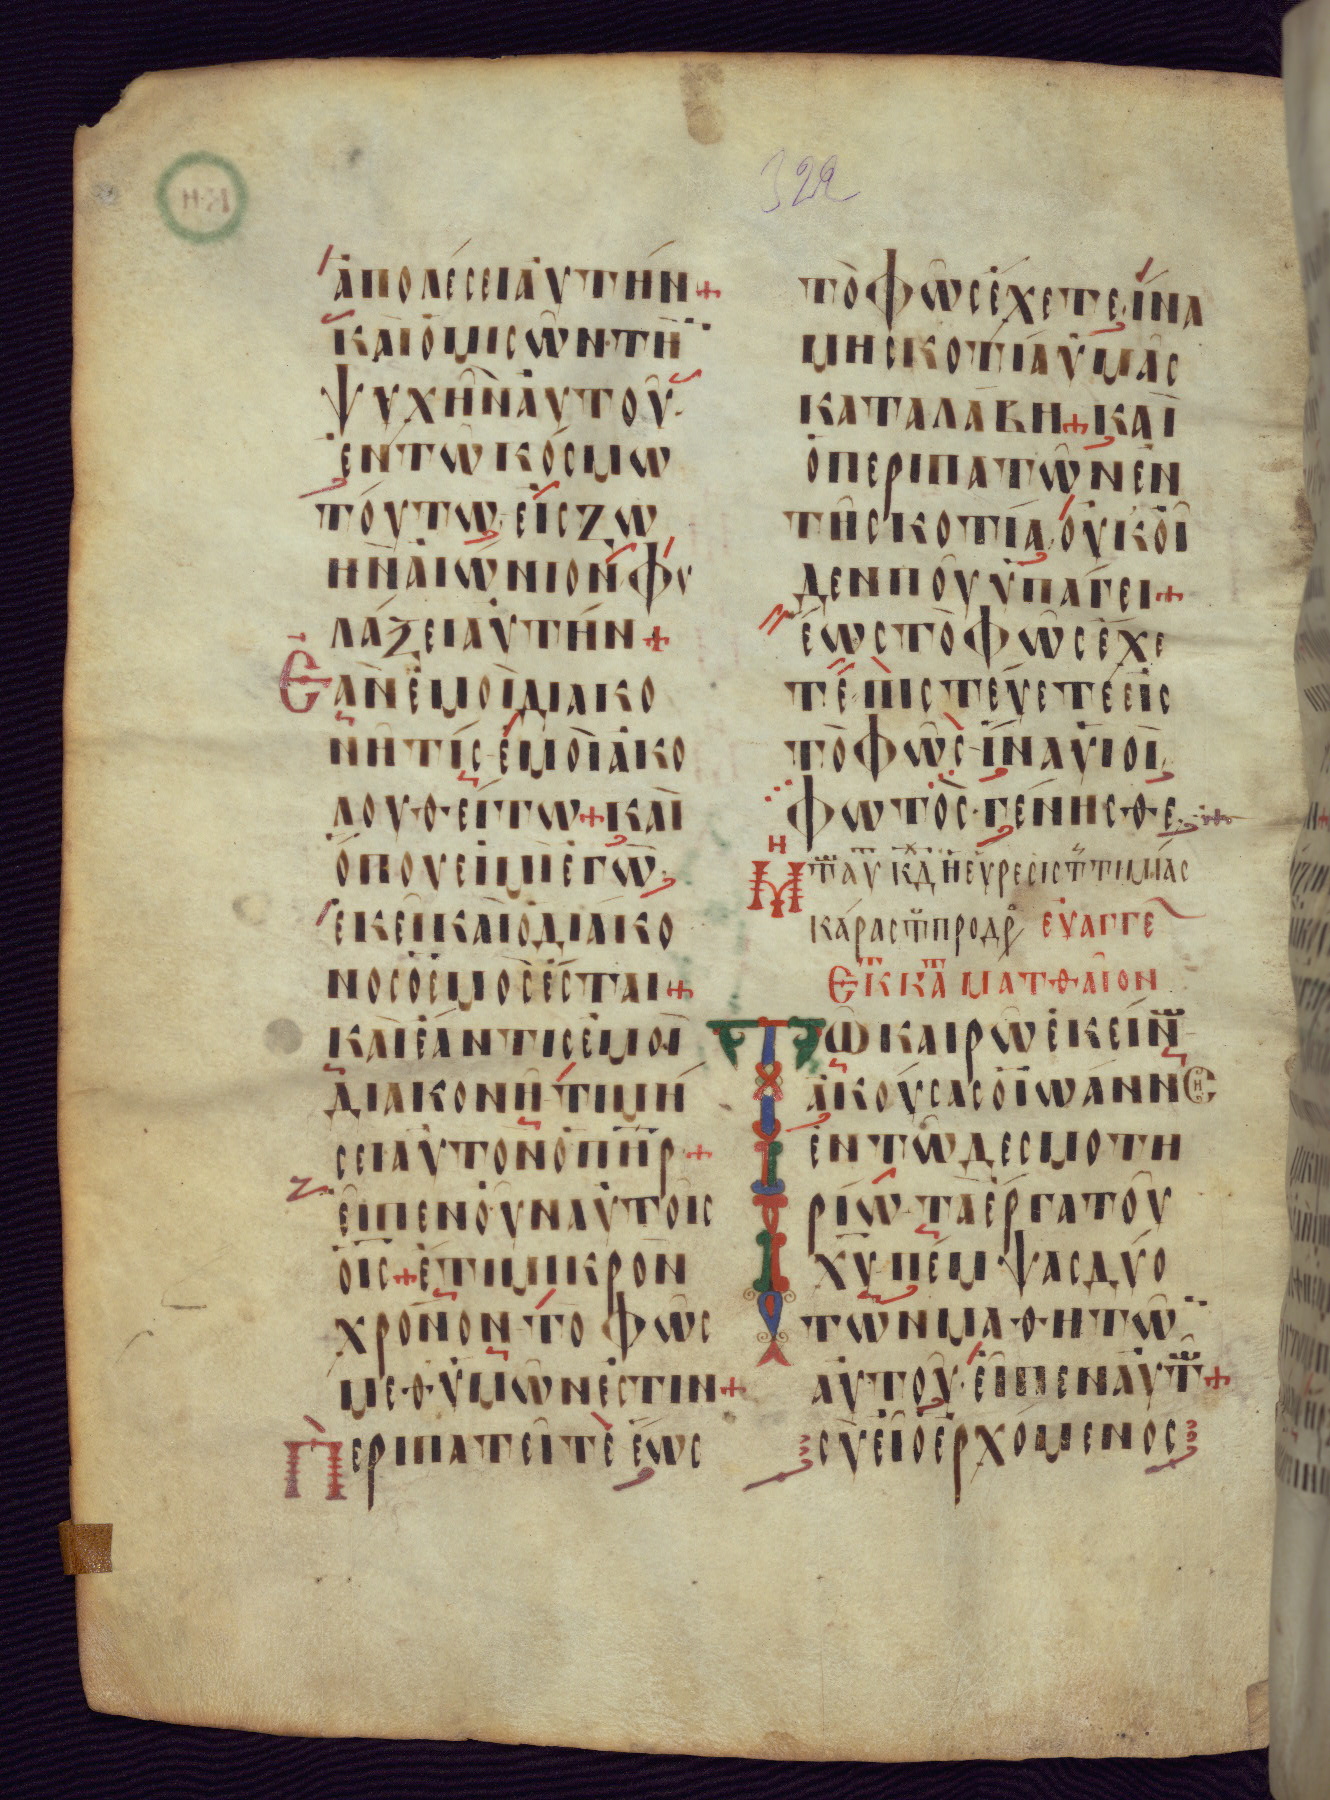 322
ἀπολέσειαὐτήν+
καὶὁμισῶν·τὴ
ψυχῆναὐτοῦ·
ἐντῶκόσμω
τούτω·εἰςζω
ὴναἰώνιονφυ
λάξειαὐτήν+
Εὰνἐμοὶδιακο
νῆτίς·ἐμοὶἀκο
λουθείτω+καὶ
ὅπουεἰμὶἐγώ·
ἐκεῖκαὶὁδιάκο
νοςὁἐμὸςἔσται+
καὶἐάντιςἐμοὶ
διακονῆ·τιμή
σειαὐτὸνὁπῆρ+
εἶπενοὖναὐτοῖς
ὁἰς+ἔτιμικρὸν
χρόνον·τὸφῶς
μεθ'ὑμῶνἐστιν+
Περιπατεῖτεἕως
τὸφῶςἔχετε·ἵνα
μὴσκοτίαὑμᾶς
καταλάβη+καὶ
ὁπεριπατῶνἐν
τῆσκοτία·οὐκοἶ
δενποῦὑπάγει+
ἕωςτὸφῶςἔχε
τέ·πιστεύετεεἰς
τὸφῶς·ἵναυἱοὶ
φωτὸς·γένησθε·
Μη τ αυ κδ ἡεὕρεσιςττιμίας
κάραςτπροδρ ευαγγε
Εκ κα ματθαῖον
Τῶκαιρῶἐκείν
ἀκούσαςὁἰωάννης
ἐντῶδεσμοτη
ρίω·τὰἔργατοῦ
χυ·πέμψαςδύο
τῶνμαθητῶ
αὐτοῦ·εἶπεναὐτ+
σὺεἶὁἐρχόμενος